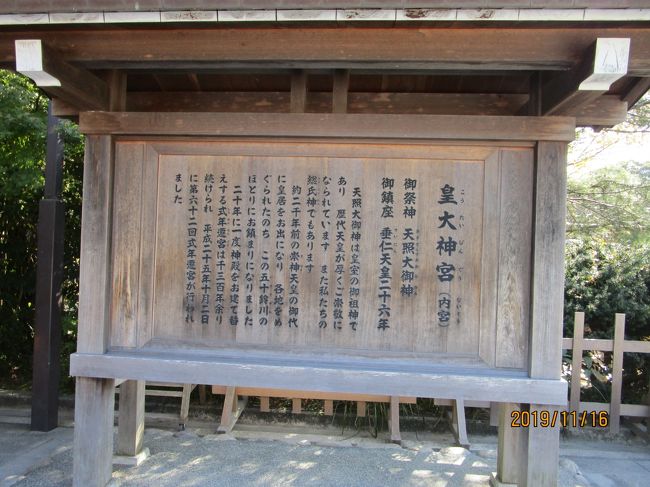 皇大神宮（内宮）
こうたいじんぐう ないくう
御祭神 天照大御神
御鎮座 垂仁天皇二十六年
天照大御神は皇室の御祖神で
あり 歴代天皇が厚くご崇敬に
なられています また私たちの
総氏神でもあります
約二千年前の崇神天皇の御代
に皇居をお出になり 各地をめ
ぐられたのち この五十鈴川の
ほとりにお鎮まりになりました
二十年に一度 神殿をお建て替
えする式年遷宮は千三百年余り
続けられ 平成二十五年十月二日
に第六十二回式年遷宮が行われ
ました
2019/11/16